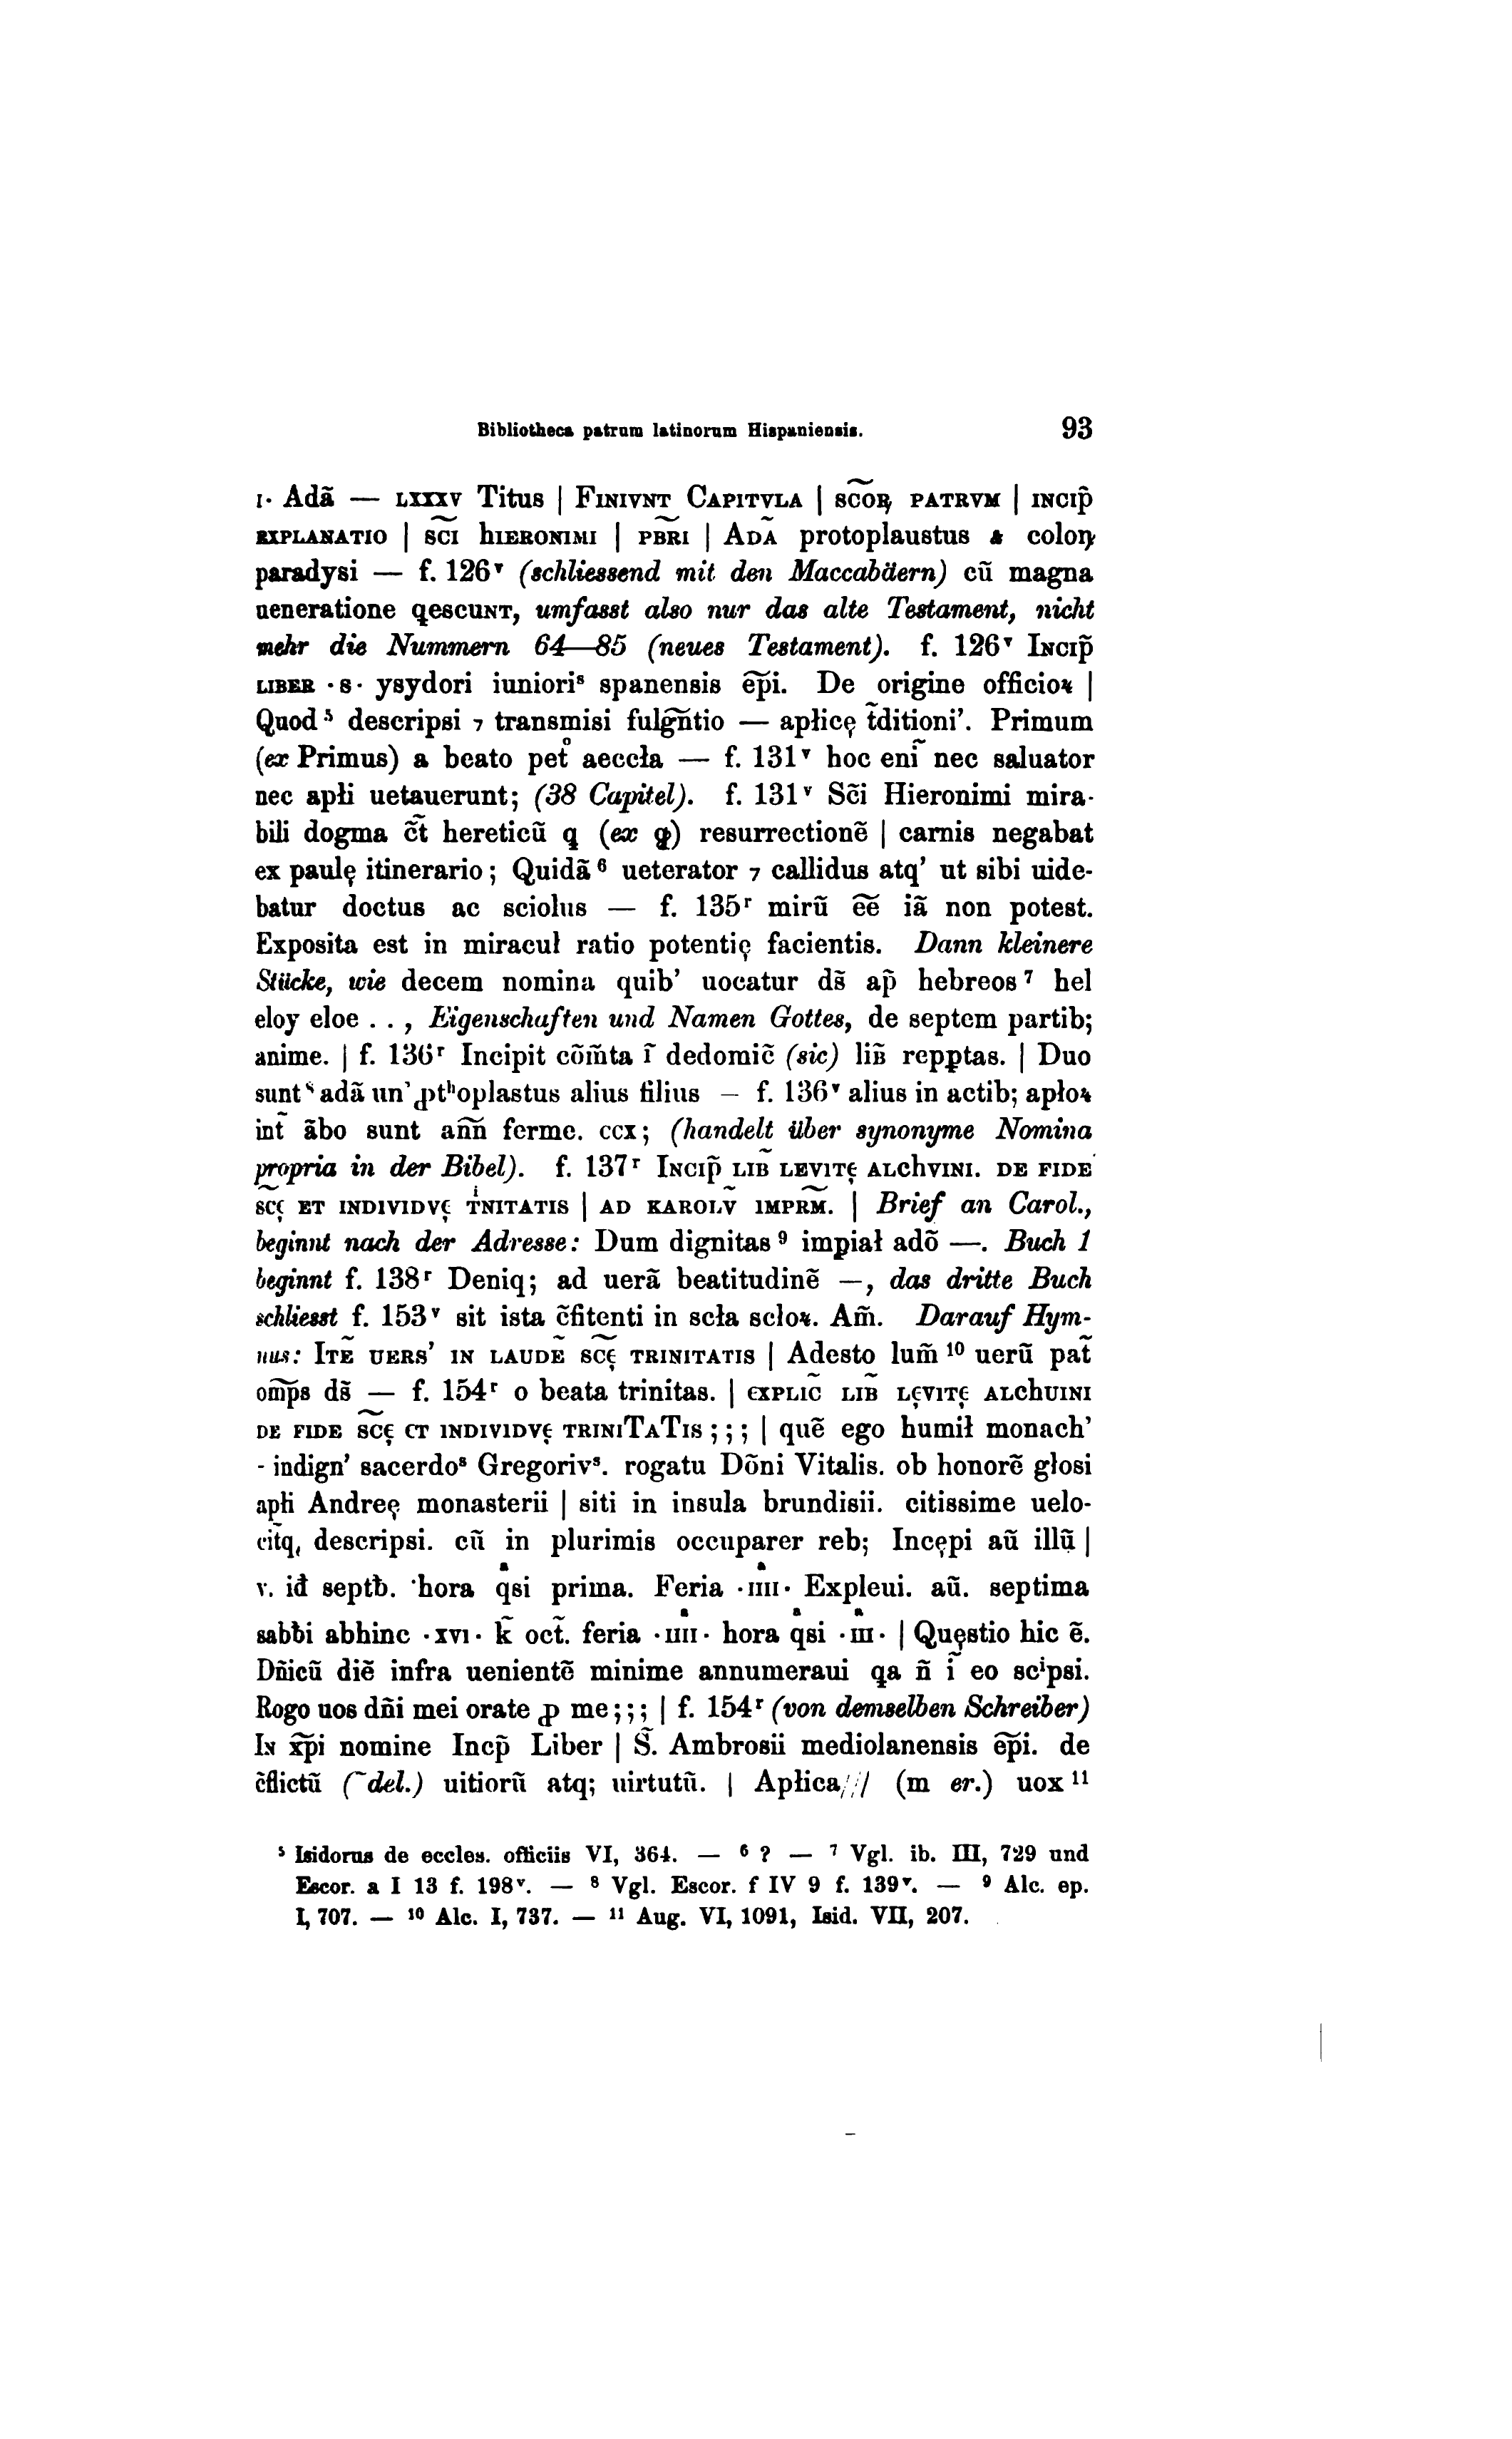 Bibliotheca patrum latinorum Hispaniensis. 93
ı· Adã — LXXXV Titus | FINIVNT CAPITVLA | SCOꝶ PATRVM | INCIP̃
EXPLANATIO | SC̃I hIERONIMI | PB̃RI | ADÃ protoplaustus & coloꝝ
paradysi — f. 126ᵛ (schliessend mit den Maccabäern) cũ magna
ueneratione qescuNT, umfasst also nur das alte Testament, nicht
mehr die Nummern 64—85 (neues Testament). f. 126ᵛ INCIP̃
LIBER ·s· ysydori iunioriˢ spanensis ep̃i. De origine officioꝝ |
Quod ⁵ descripsi ⁊ transmisi fulgñtio — apłicę t̃ditioni’. Primum
(ex Primus) a beato pet° aeccła — f. 131ᵛ hoc enĩ nec saluator
nec apłi uetauerunt; (38 Capitel). f. 131ᵛ Sc̃i Hieronimi mira-
bili dogma c̃t hereticũ q (ex ꝙ) resurrectionẽ | carnis negabat
ex paulę itinerario; Quidã ⁶ ueterator ⁊ callidus atq’ ut sibi uide-
batur doctus ac sciolus — f. 135ʳ mirũ ẽẽ iã non potest.
Exposita est in miracuł ratio potentię facientis. Dann kleinere
Stücke, wie decem nomina quib’ uocatur ds̃ ap̃ hebreos ⁷ hel
eloy eloe . . , Eigenschaften und Namen Gottes, de septem partib;
anime. | f. 136ʳ Incipit cõm̃ta ĩ dedomic̃ (sic) lib̃ repꝑtas. | Duo
sunt ⁸ adã un’ ꝓtʰoplastus alius filius — f. 136ᵛ alius in actib; apłoꝝ
int̃ ãbo sunt añn ferme. ccx; (handelt über synonyme Nomina
propria in der Bibel). f. 137ʳ INCIP̃ LIB̃ LEVITę ALChVINI. DE FIDE
SC̃ę ET INDIVIDVę TⁱNITATIS | AD KAROLṼ IMPRM̃. | Brief an Carol.,
beginnt nach der Adresse: Dum dignitas ⁹ impiał adõ —. Buch 1
beginnt f. 138ʳ Deniq; ad uerã beatitudinẽ —, das dritte Buch
schliesst f. 153ᵛ sit ista c̃fitenti in scła scloꝝ. Am̃. Darauf Hym-
nus: ITẼ UERS’ IN LAUDẼ SC̃ę TRINITATIS | Adesto lum̃ ¹⁰ uerũ pat̃
om̃ps ds̃ — f. 154ʳ o beata trinitas. | ЄXPLIC̃ LIB̃ LęVITę ALChUINI
DE FIDE SC̃ę ЄT INDIVIDVę TRINITATIS ; ; ; | quẽ ego humił monach’
- indign’ sacerdoˢ Gregorivˢ. rogatu Dõni Vitalis. ob honorẽ głosi
apłi Andreę monasterii | siti in insula brundisii. citissime uelo-
cit̃q, descripsi. cũ in plurimis occuparer reb; Incępi aũ illũ |
v. iđ septƀ. hora qᵃsi prima. Feria ·ıııı·ᵃ Expleui. aũ. septima
sabƀi abhinc ·xvı· k̃ oct̃. feria ·ıııı·ᵃ hora qᵃsi ·ııı·ᵃ | Quęstio hic ẽ.
Dñicũ diẽ infra uenientẽ minime annumeraui qa ñ ĩ eo scⁱpsi.
Rogo uos dñi mei orate ꝓ me ; ; ; | f. 154ʳ (von demselben Schreiber)
IN xp̃i nomine Incp̃ Liber | S̃. Ambrosii mediolanensis ep̃i. de
c̃flictũ (˜ del.) uitiorũ atq; uirtutũ. | Apłica/// (m er.) uox ¹¹
⁵ Isidorus de eccles. officiis VI, 364. — ⁶ ? — ⁷ Vgl. ib. III, 729 und
Escor. a I 13 f. 198ᵛ. — ⁸ Vgl. Escor. f IV 9 f. 139ᵛ. — ⁹ Alc. ep.
I, 707. — ¹⁰ Alc. I, 737. — ¹¹ Aug. VI, 1091, Isid. VII, 207.